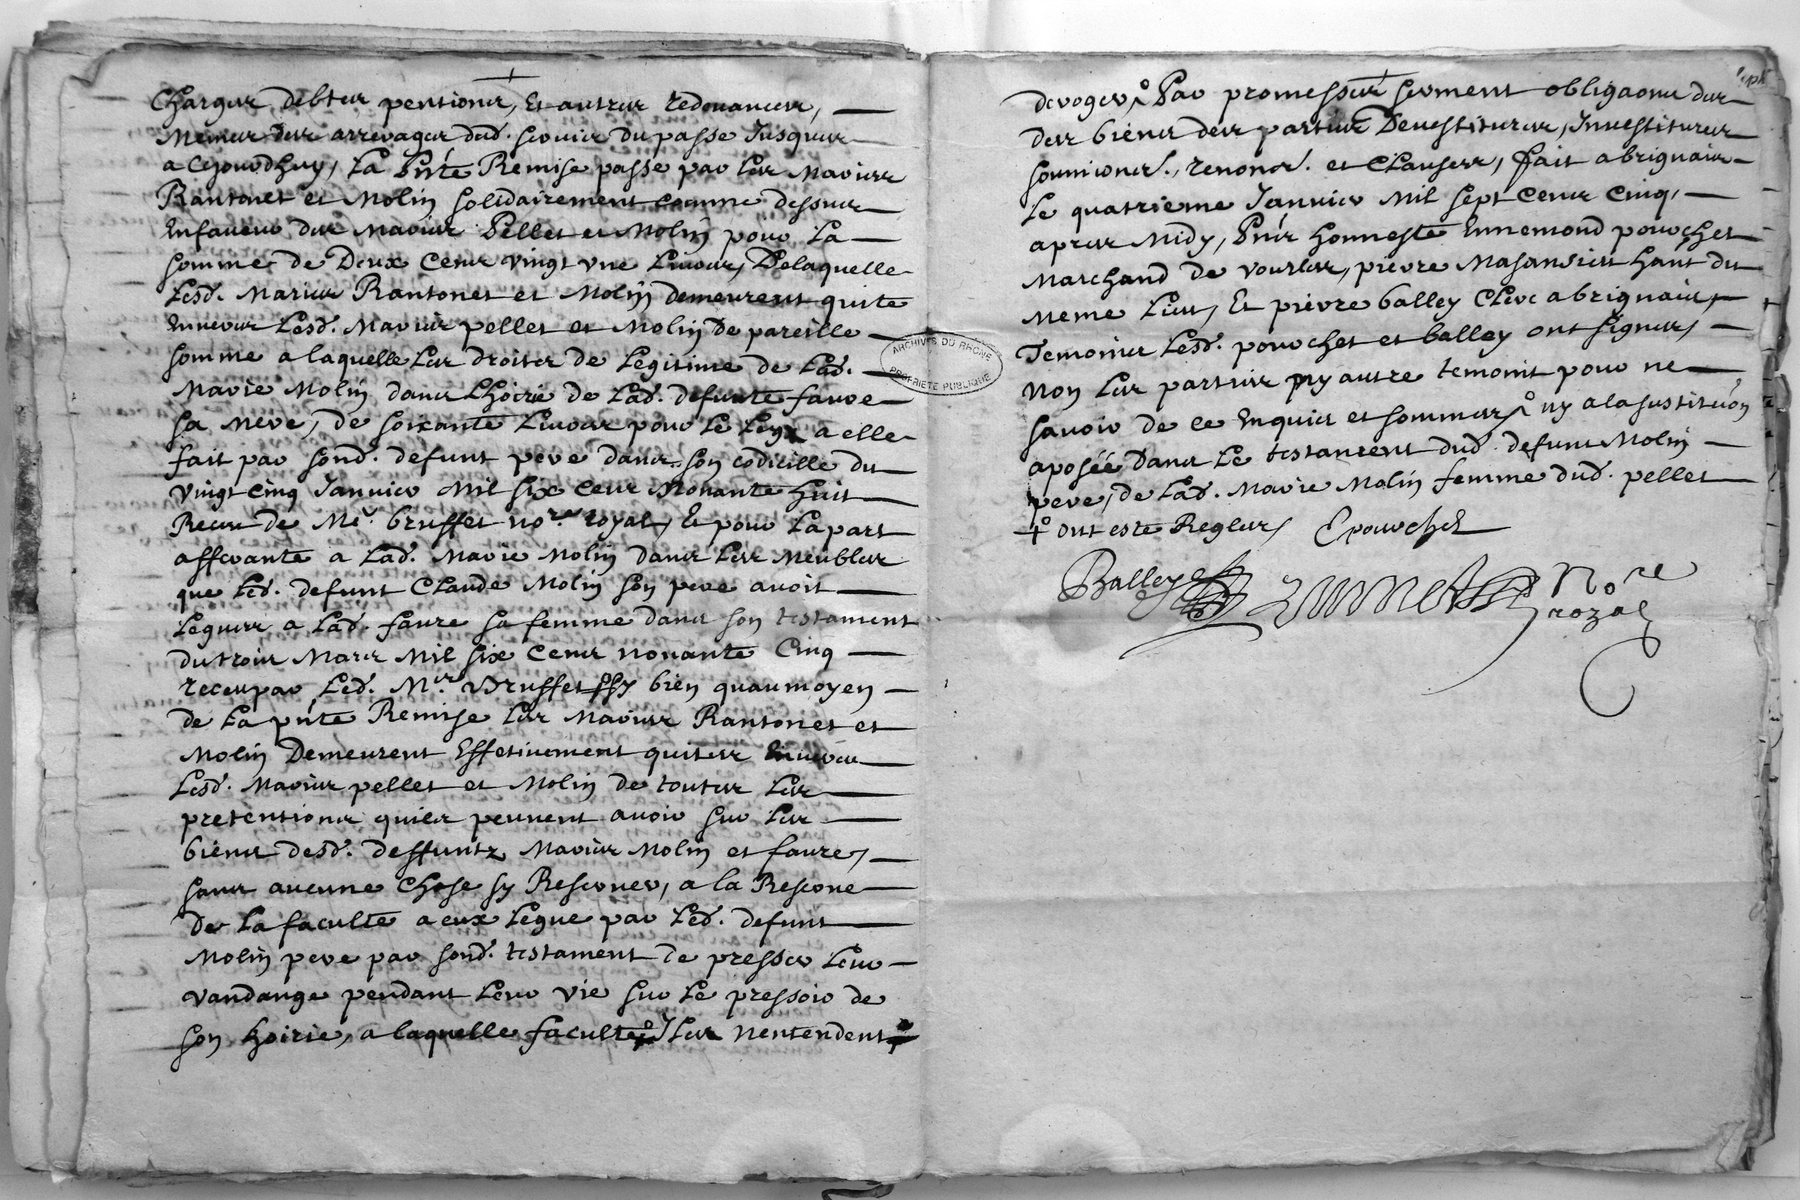 Charges debtes pentions, Et autres redevances,
Memes des arrerages dud. servis du passe Jusques
a Cejourdhuy, La pnte Remise passe par Les Maries
Rantonet et Molin solidairement comme dessus
Enfaveur des Maries Pellet et Molin pour La
somme de Deux Cens vingt une Livres, Delaquelle
Lesd. Maries Rantonet et Molin demeurent quite
Envers Lesd. Maries pellet et Molin de pareille
somme a laquelle Les droits de Legitime de Lad.
Marie Molin dans Lhoirie de Lad. defunte faure
sa Mere, de soixante Livres pour Le Legs a elle
fait par sond. defunt pere dans son codicille du
vingt Cinq Janvier Mil six Cens Nonante huit
Receu de Me. bruffet nore. royal, Et pour La part
afferante a Lad. Marie Molin dans Les Meubles
que Led. defunt Claude Molin son pere avoit
Legues a Lad. faure sa femme dans son testament
du trois Mars Mil six Cens nonante Cinq
receu par Led. Mre Bruffet sy bien quaumoyen
de La pnte Remise Les Maries Rantonet et
Molin Demeurent Effetivement quites Envers
Lesd. Maries pellet et Molin de toutes Les
pretentions quils peuvent avoir sur Les
biens desd. deffuntz Maries Molin et faure,
sans aucune Chose sy Reserver, a la Reserve
de La faculte a eux Legue par Led. defunt
Molin pere par sond. testament de presser Leur
vandange pendant Leur vie sur Le pressoir de
son hoirie, a laquelle faculte Ils nentendent
deroger Par promesses serment obligaons des
des biens des parties Devestitures, Investitures
soumions., renons. et Clauses, fait a brignais
Le quatrieme Janvier Mil sept Cens Cinq,
apres Midy, Pns honneste Ennemond pourchet
Marchand de vourles, pierre Masansieu hant du
Meme Lieu, Et pierre balley Clerc a brignais,
Temoins Lesd. pourchet et balley ont signes,
Non Les parties ny autre temoint pour ne
savoir de ce Enquis et sommes ny a la sustitution
aposée dans Le testament dud. defunt Molin
pere, de Lad. Marie Molin femme dud. pellet
ont este Regles, Epourchet
Balley Nore
royal
ARCHIVES DU RHONE
PROPRIETE PUBLIQUE